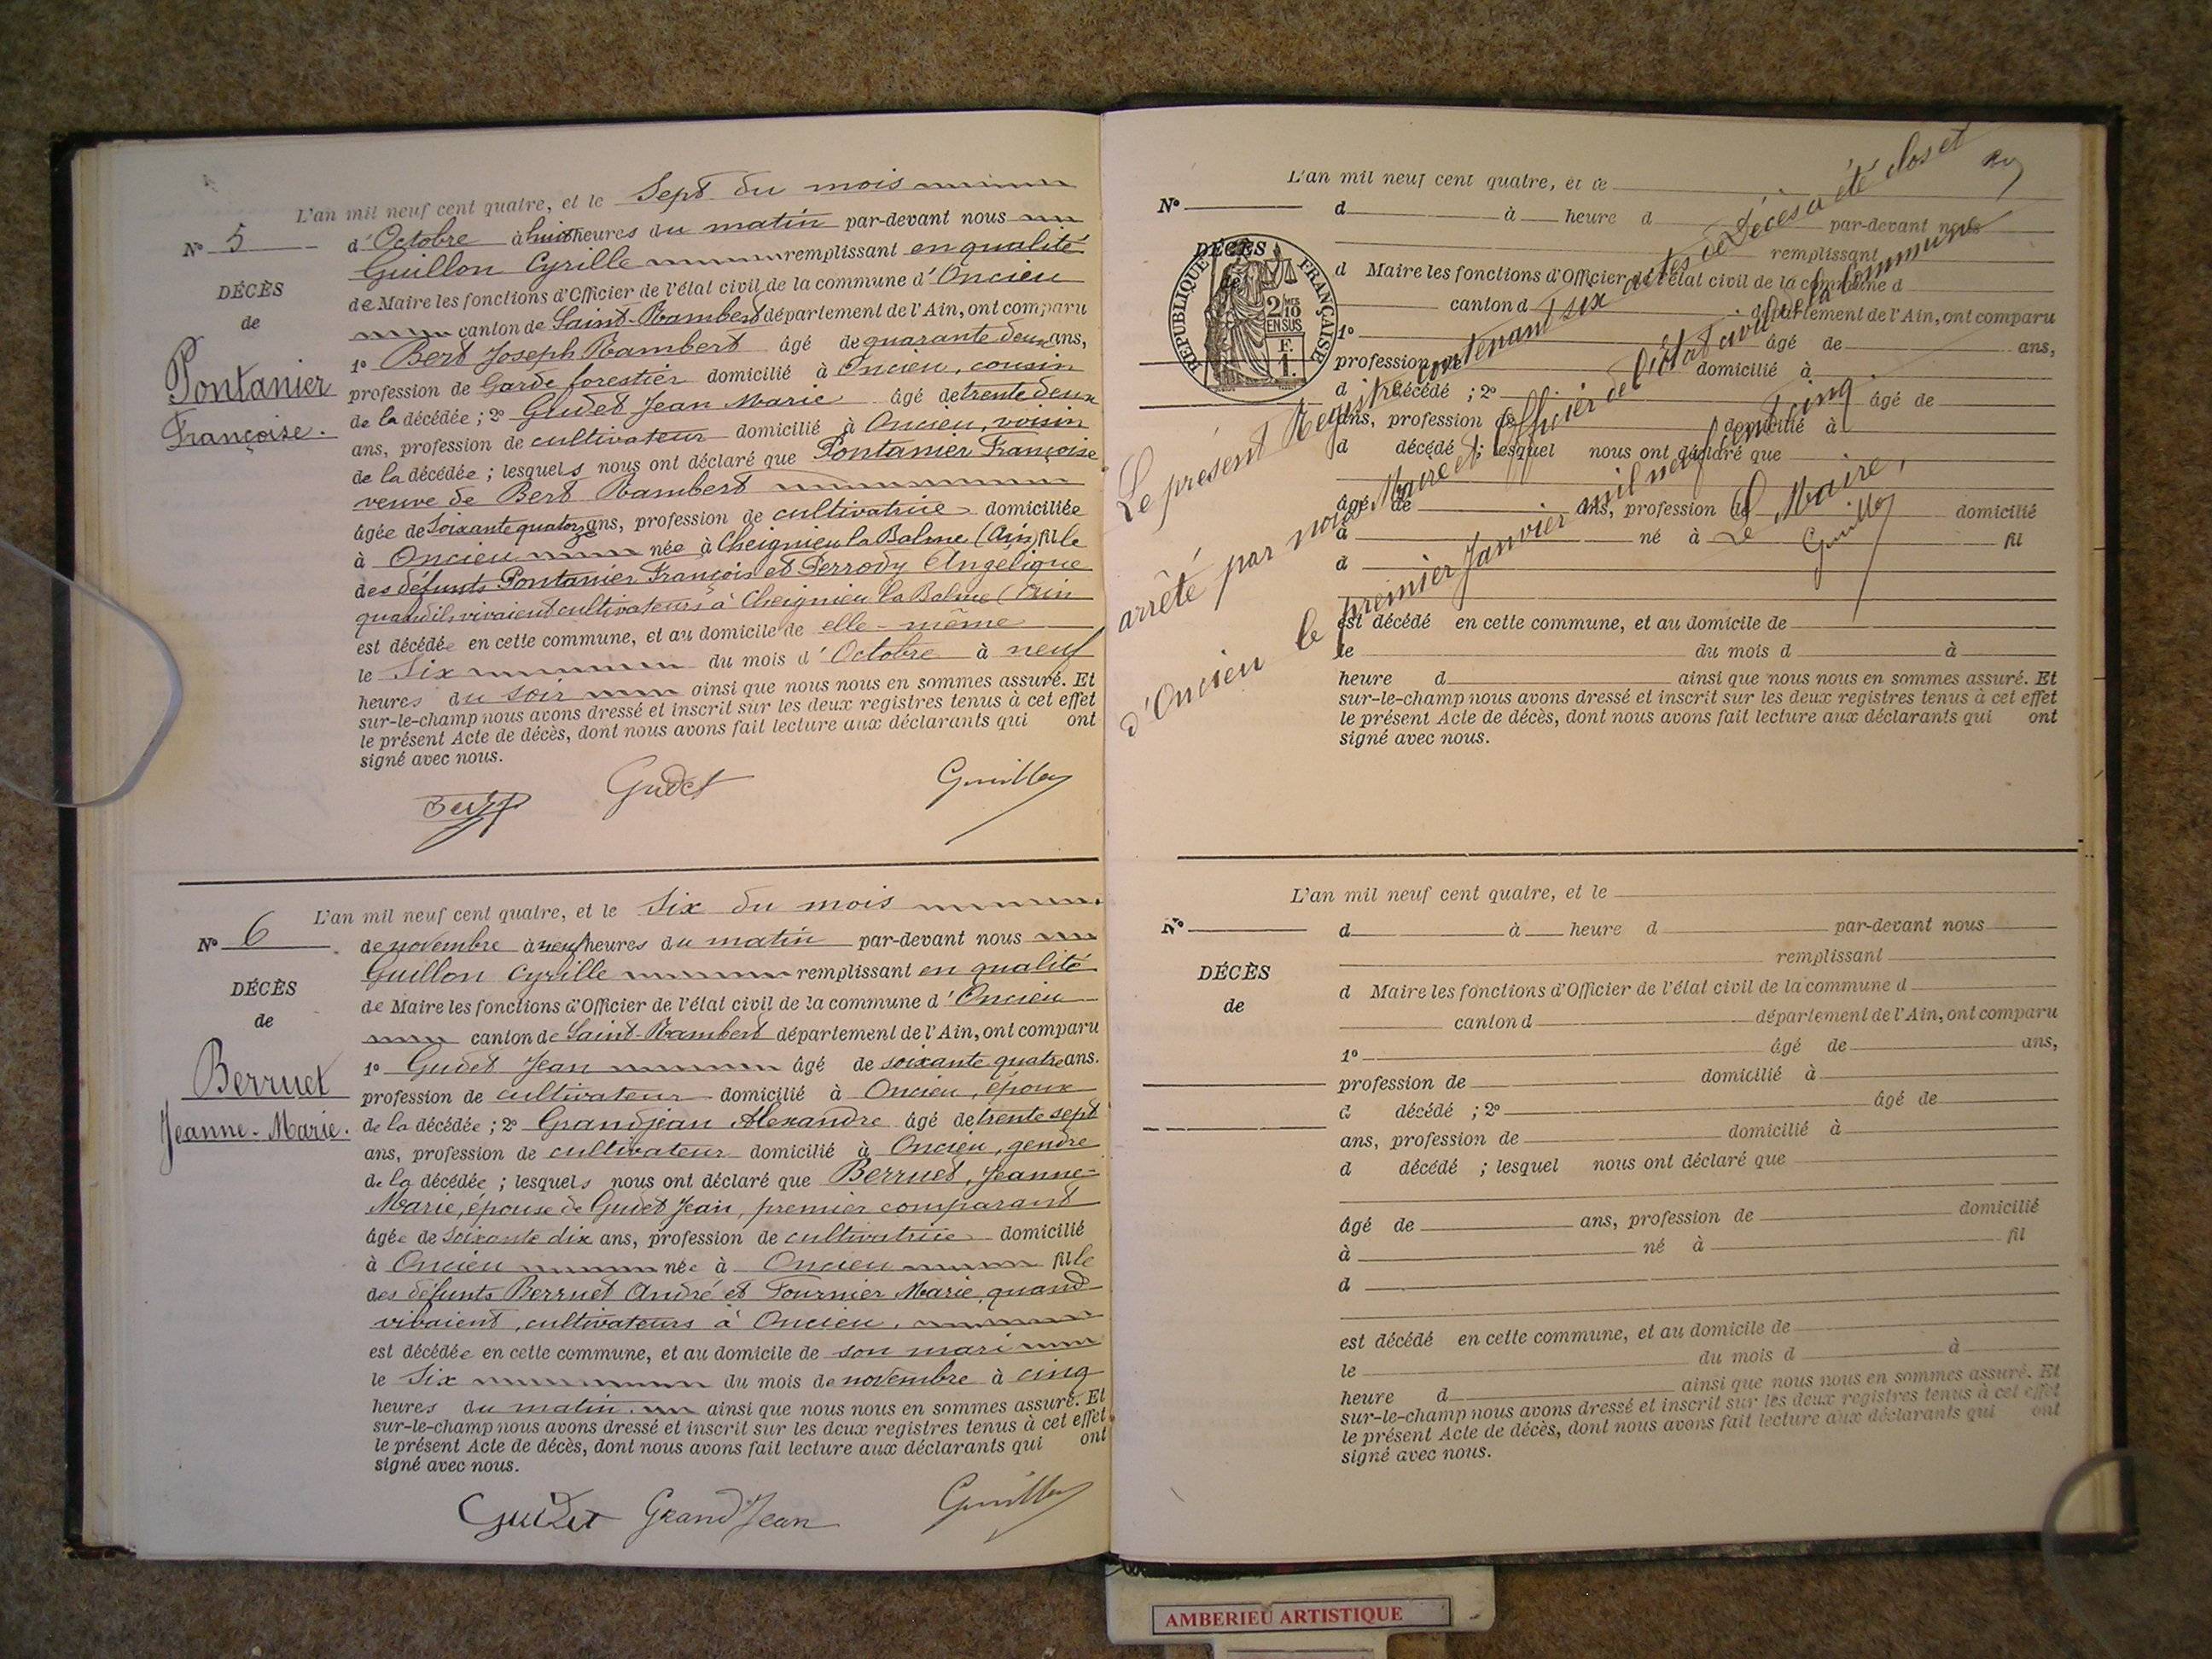 L'an mil neuf cent quatre, et le Sept du mois
N° 5 d'Octobre à huit heures du matin par-devant nous
Guillon Cyrille remplissant en qualité
DÉCÈS
de Maire les fonctions d'Officier de l'état civil de la commune d'Oncieu
de
canton de Saint-Rambert département de l'Ain, ont comparu
1° Bert Joseph Rambert âgé de quarante deux ans,
Pontanier
profession de Garde forestier domicilié à Oncieu, cousin
de la décédée ; 2° Gudet Jean Marie âgé de trente deux
Françoise.
ans, profession de cultivateur domicilié à Oncieu, voisin
de la décédée ; lesquels nous ont déclaré que Pontanier Françoise
veuve de Bert Rambert
âgée de soixante quatorze ans, profession de cultivatrice domiciliée
à Oncieu née à Cheignieu la Balme (Ain) fille
des défunts Pontanier François et Perrody Angélique
quand ils vivaient cultivateurs à Cheignieu la Balme (Ain
est décédée en cette commune, et au domicile de elle-même
le Six du mois d'Octobre à neuf
heures du soir ainsi que nous nous en sommes assuré. Et
sur-le-champ nous avons dressé et inscrit sur les deux registres tenus à cet effet
le présent Acte de décès, dont nous avons fait lecture aux déclarants qui ont
signé avec nous.
Bert Gudet Guillon
L'an mil neuf cent quatre, et le Six du mois
N° 6 de novembre à neuf heures du matin par-devant nous
Guillon Cyrille remplissant en qualité
DÉCÈS
de Maire les fonctions d'Officier de l'état civil de la commune d'Oncieu
de
canton de Saint-Rambert département de l'Ain, ont comparu
1° Gudet Jean âgé de soixante quatre ans.
Berruet
profession de cultivateur domicilié à Oncieu, époux
Jeanne-Marie.
de la décédée ; 2° Grandjean Alexandre âgé de trente sept
ans, profession de cultivateur domicilié à Oncieu, gendre
de la décédée ; lesquels nous ont déclaré que Berruet, Jeanne-
Marie, épouse de Gudet Jean, premier comparant
âgée de soixante dix ans, profession de cultivatrice domicilié
à Oncieu née à Oncieu fille
des défunts Berruet André et Fournier Marie, quand
vivaient, cultivateurs à Oncieu.
est décédée en cette commune, et au domicile de son mari
le Six du mois de novembre à cinq
heures du matin. ainsi que nous nous en sommes assuré. Et
sur-le-champ nous avons dressé et inscrit sur les deux registres tenus à cet effet
le présent Acte de décès, dont nous avons fait lecture aux déclarants qui ont
signé avec nous.
Gudet Grand Jean Guillon
L'an mil neuf cent quatre, et le
N° d à heure d par-devant nous
DÉCÈS
de
remplissant
RÉPUBLIQUE FRANÇAISE
2/10 MES EN SUS
F.
1.
d Maire les fonctions d'Officier de l'état civil de la commune d
canton d département de l'Ain, ont comparu
1° âgé de ans,
profession de domicilié à
d décédé ; 2° âgé de
ans, profession de domicilié à
d décédé ; lesquel nous ont déclaré que
âgé de ans, profession de domicilié
à né à fil
d
est décédé en cette commune, et au domicile de
le du mois d à
heure d ainsi que nous nous en sommes assuré. Et
sur-le-champ nous avons dressé et inscrit sur les deux registres tenus à cet effet
le présent Acte de décès, dont nous avons fait lecture aux déclarants qui ont
signé avec nous.
Le présent Registre contenant six actes de Décès a été clos et
arrêté par nous Maire et Officier de l'état civil de la commune
d'Oncieu le premier Janvier mil neuf cent cinq
Le Maire,
Guillon
L'an mil neuf cent quatre, et le
N° d à heure d par-devant nous
remplissant
DÉCÈS
d Maire les fonctions d'Officier de l'état civil de la commune d
de
canton d département de l'Ain, ont comparu
1° âgé de ans,
profession de domicilié à
d décédé ; 2° âgé de
ans, profession de domicilié à
d décédé ; lesquel nous ont déclaré que
âgé de ans, profession de domicilié
à né à fil
d
est décédé en cette commune, et au domicile de
le du mois d à
heure d ainsi que nous nous en sommes assuré. Et
sur-le-champ nous avons dressé et inscrit sur les deux registres tenus à cet effet
le présent Acte de décès, dont nous avons fait lecture aux déclarants qui ont
signé avec nous.
AMBERIEU ARTISTIQUE